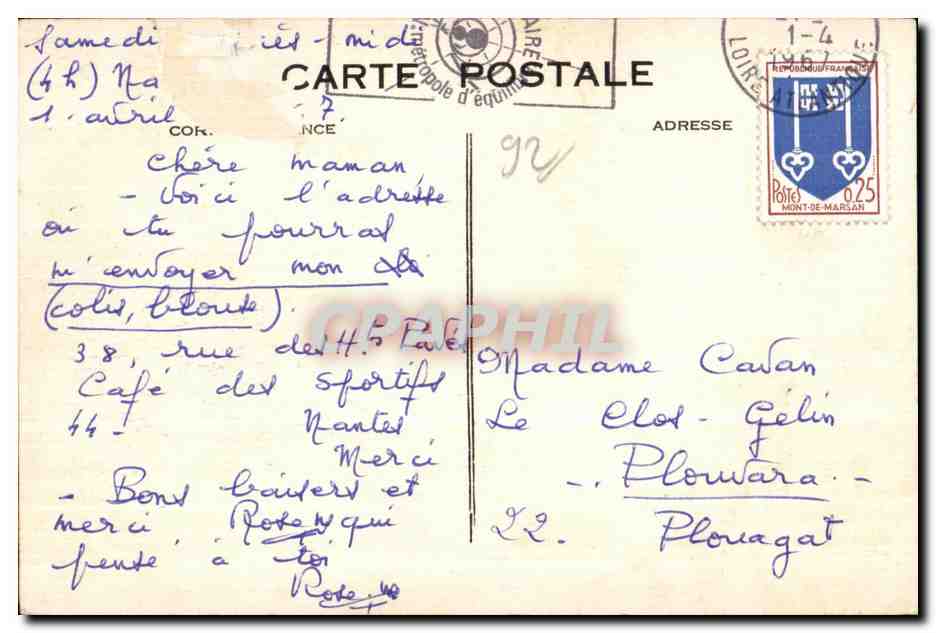 Samedi
(4h)
1 avril 7
CARTE POSTALE
ADRESSE
métropole d'équili
1-4
1967
LOIRE
RÉPUBLIQUE FRANÇAISE
POSTES 0,25
MONT-DE-MARSAN
92
Chère maman,
- Voici l'adresse
où tu pourras
m'envoyer mon
(colis, blouse).
38, rue des Hts Pavés
Café des Sportifs
44 - Nantes
Merci
- Bons baisers et
merci. qui
pense à toi
CPAPHIL
Madame Cavan
Le Clos-Gélin
- Plouvara -
22. Plouagat